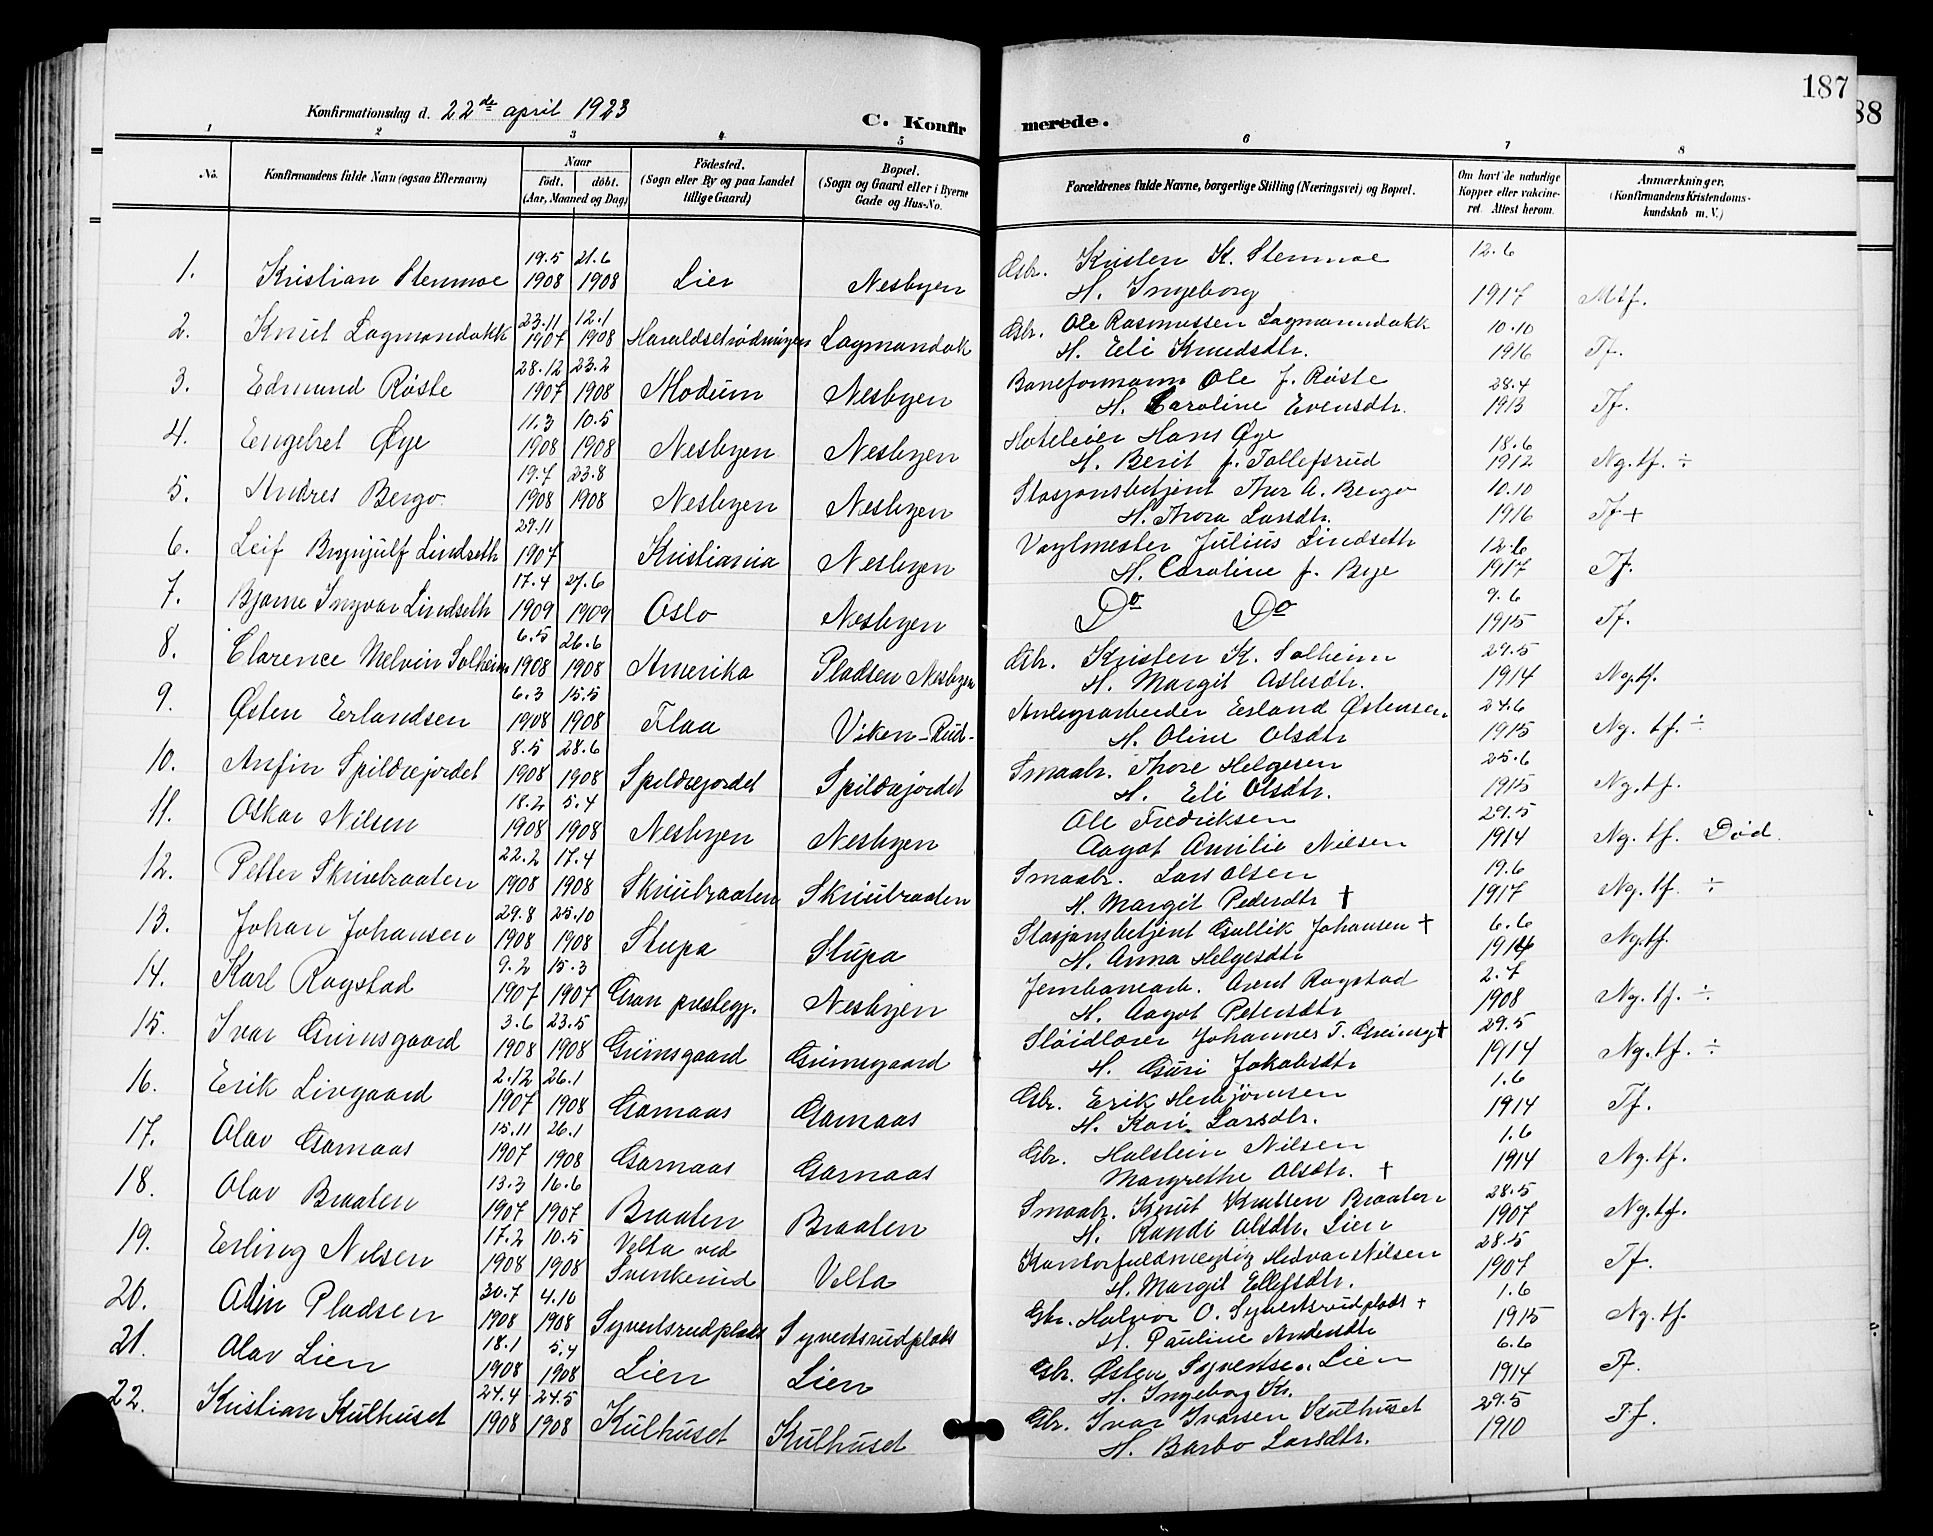 187
88
Konfirmationsdag d. 22de april 1923
C. Konfirmerede.
1 2 3 4 5 6 7 8
No. Konfirmandens fulde Navn (ogsaa Efternavn) Naar födt. döbt. (Aar, Maaned og Dag) Födested. (Sogn eller By og paa Landet tillige Gaard) Bopæl. (Sogn og Gaard eller i Byerne Gade og Hus-No. Forældrenes fulde Navne, borgerlige Stilling (Næringsvei) og Bopæl. Om havt de naturlige Kopper eller vakcineret. Attest herom. Anmærkninger. (Konfirmandens Kristendomskundskab m. V.)
1. Kristian Stenmoe 19.5 1908 21.6 1908 Lier Nesbyen Gbr. Kristen K. Stenmoe 12.6
H. Ingeborg 1917 Mtf.
2. Knut Lagmandokk 23.11 1907 12.1 1908 Haraldsetrødningen Lagmandok Gbr. Ole Rasmussen Lagmanndokk 10.10
H. Eli Knudsdtr. 1916 Tf.
3. Edmund Røste 28.12 1907 23.2 1908 Modum Nesbyen Baneformann Ole J. Røste 28.4
H. Caroline Evensdtr. 1913 Tf.
4. Engebret Øye 11.3 1908 10.5 1908 Nesbyen Nesbyen Hoteleier Hans Øye 18.6
H. Berit f. Tollefsrud 1912 Ng. tf. ÷
5. Andres Bergo. 19.7 1908 23.8 1908 Nesbyen Nesbyen Stasjonsbetjent Thor A. Bergo 10.10
H. Thora Larsdtr. 1916 Tf +
6. Leif Brynjulf Lindseth 29.11 1907 Kristiania Nesbyen Vagtmester Julius Lindseth 12.6
H. Caroline f. Bye 1917 Tf.
7. Bjarne Ingvar Lindseth 17.4 1909 27.6 1909 Oslo Nesbyen Do Do 9.6
1915 Tf.
8. Clarence Melvin Solheim 6.5 1908 26.6 1908 Amerika Pladsen Nesbyen Gbr. Kristen K. Solheim 29.5
H. Margit Aslesdtr. 1914 Ng. tf.
9. Østen Erlandsen 6.3 1908 15.5 1908 Flaa Viken-Rud- Anlegsarbeider Erland Østensen 24.6
H. Oline Olsdtr 1915 Ng. tf. ÷
10. Anfin Spildrejordet 8.5 1908 28.6 1908 Spildrejordet Spildrejordet Smaabr. Thore Helgesen 25.6
H. Eli Olsdtr. 1915 Ng. tf.
11. Oskar Nilsen 18.2 1908 5.4 1908 Nesbyen Nesbyen Ole Fredriksen 29.5
Aagot Amilie Nilsen 1914 Ng. tf. Død.
12. Petter Skriubraaten 22.2 1908 17.4 1908 Skriubraaten Skriubraaten Smaabr. Lars Olsen 19.6
H. Margit Pedersdtr † 1917 Ng. tf. ÷
13. Johan Johansen 29.8 1908 25.10 1908 Stupa Stupa Stasjonsbetjent Gullik Johansen † 6.6
H. Anna Helgesdtr 1914 Ng. tf.
14. Karl Rogstad 9.2 1907 15.3 1907 Gran prestegj. Nesbyen Jernbanearb. Arent Rogstad 2.7
H. Aagot Petersdtr 1908 Ng. tf. ÷
15. Ivar Grimsgaard 3.6 1908 23.5 1908 Grimsgaard Grimsgaard Sløidlærer Johannes T. Grimsg † 29.5
H. Guri Jakobsdtr 1914 Ng. tf. ÷
16. Erik Livgaard 2.12 1907 26.1 1908 Garnaas Garnaas Gbr. Erik Herbjørnsen 1.6
H. Kari Larsdtr. 1914 Tf.
17. Olav Garnaas 15.11 1907 26.1 1908 Garnaas Garnaas Gbr. Holstein Nilsen 1.6
Margrethe Olsdtr. † 1914 Ng. tf.
18. Olav Braaten 13.3 1907 16.6 1907 Braaten Braaten Smaabr. Knut Knutsen Braaten 28.5
H. Randi Olsdtr. Lien 1907 Ng. tf.
19. Erling Nilsen 17.2 1908 10.5 1908 Velta ved Svenkerud Velta Kontorfuldmægtig Hedvar Nilsen 28.5
H. Margit Ellefsdtr. 1907 Tf.
20. Odin Pladsen 30.7 1908 4.10 1908 Syvertsrudplads Syvertsrudplads Gbr. Halvor O. Syvertsrudplads + 1.6
H. Pauline Andersdtr 1915 Ng. tf.
21. Olav Lien 18.1 1908 5.4 1908 Lien Lien Gbr. Østen Syvertsen Lien 6.6
H. Ingeborg Kr. 1914 Tf.
22. Kristian Kulhuset 24.4 1908 24.5 1908 Kulhuset Kulhuset Gbr. Ivar Ivarsen Kulhuset 29.5
H. Barbo Larsdtr. 1910 Tf.